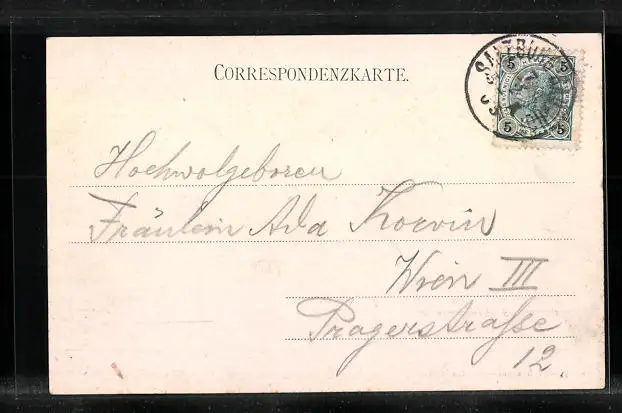 CORRESPONDENZKARTE.
SALZBURG
5 5
5 5
Hochwolgeboren
Fräulein Ada Koevin
Wien III
Pragerstraße
12.